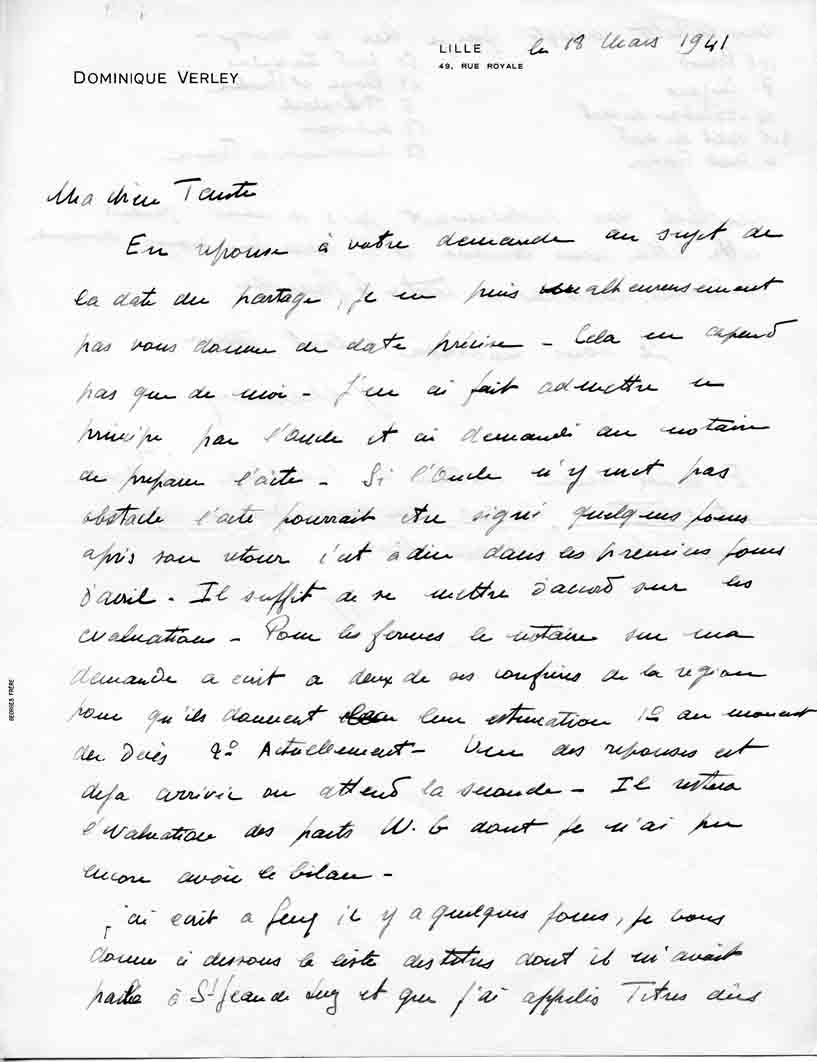 LILLE le 18 Mars 1941
49, RUE ROYALE
DOMINIQUE VERLEY
Ma chere Tante
En reponse à votre demande au sujet de
la date du partage, je ne puis malheureusement
pas vous donner de date précise - Cela ne depend
pas que de moi - J'en ai fait admettre le
principe par l'Oncle et ai demandé au notaire
de preparer l'acte - Si l'Oncle n'y met pas
obstacle l'acte pourrait etre signé quelques jours
après son retour c'est à dire dans les premiers jours
d'avril - Il suffit de se mettre d'accord sur les
evaluations - Pour les fermes le notaire sur ma
demande a ecrit a deux de ses confrères de la region
pour qu'ils donnent leur estimation 1º au moment
du Décès 2º Actuellement - Une des reponses est
deja arrivée on attend la seconde - Il restera
l'evaluation des parts W. G dont je n'ai pu
encore avoir le bilan -
j'ai ecrit a il y a quelques jours, je vous
donne ci dessous la liste des titres dont il m'avait
parlé à St Jean de Luz et que j'ai appelés Titres
GEORGES FRÈRE